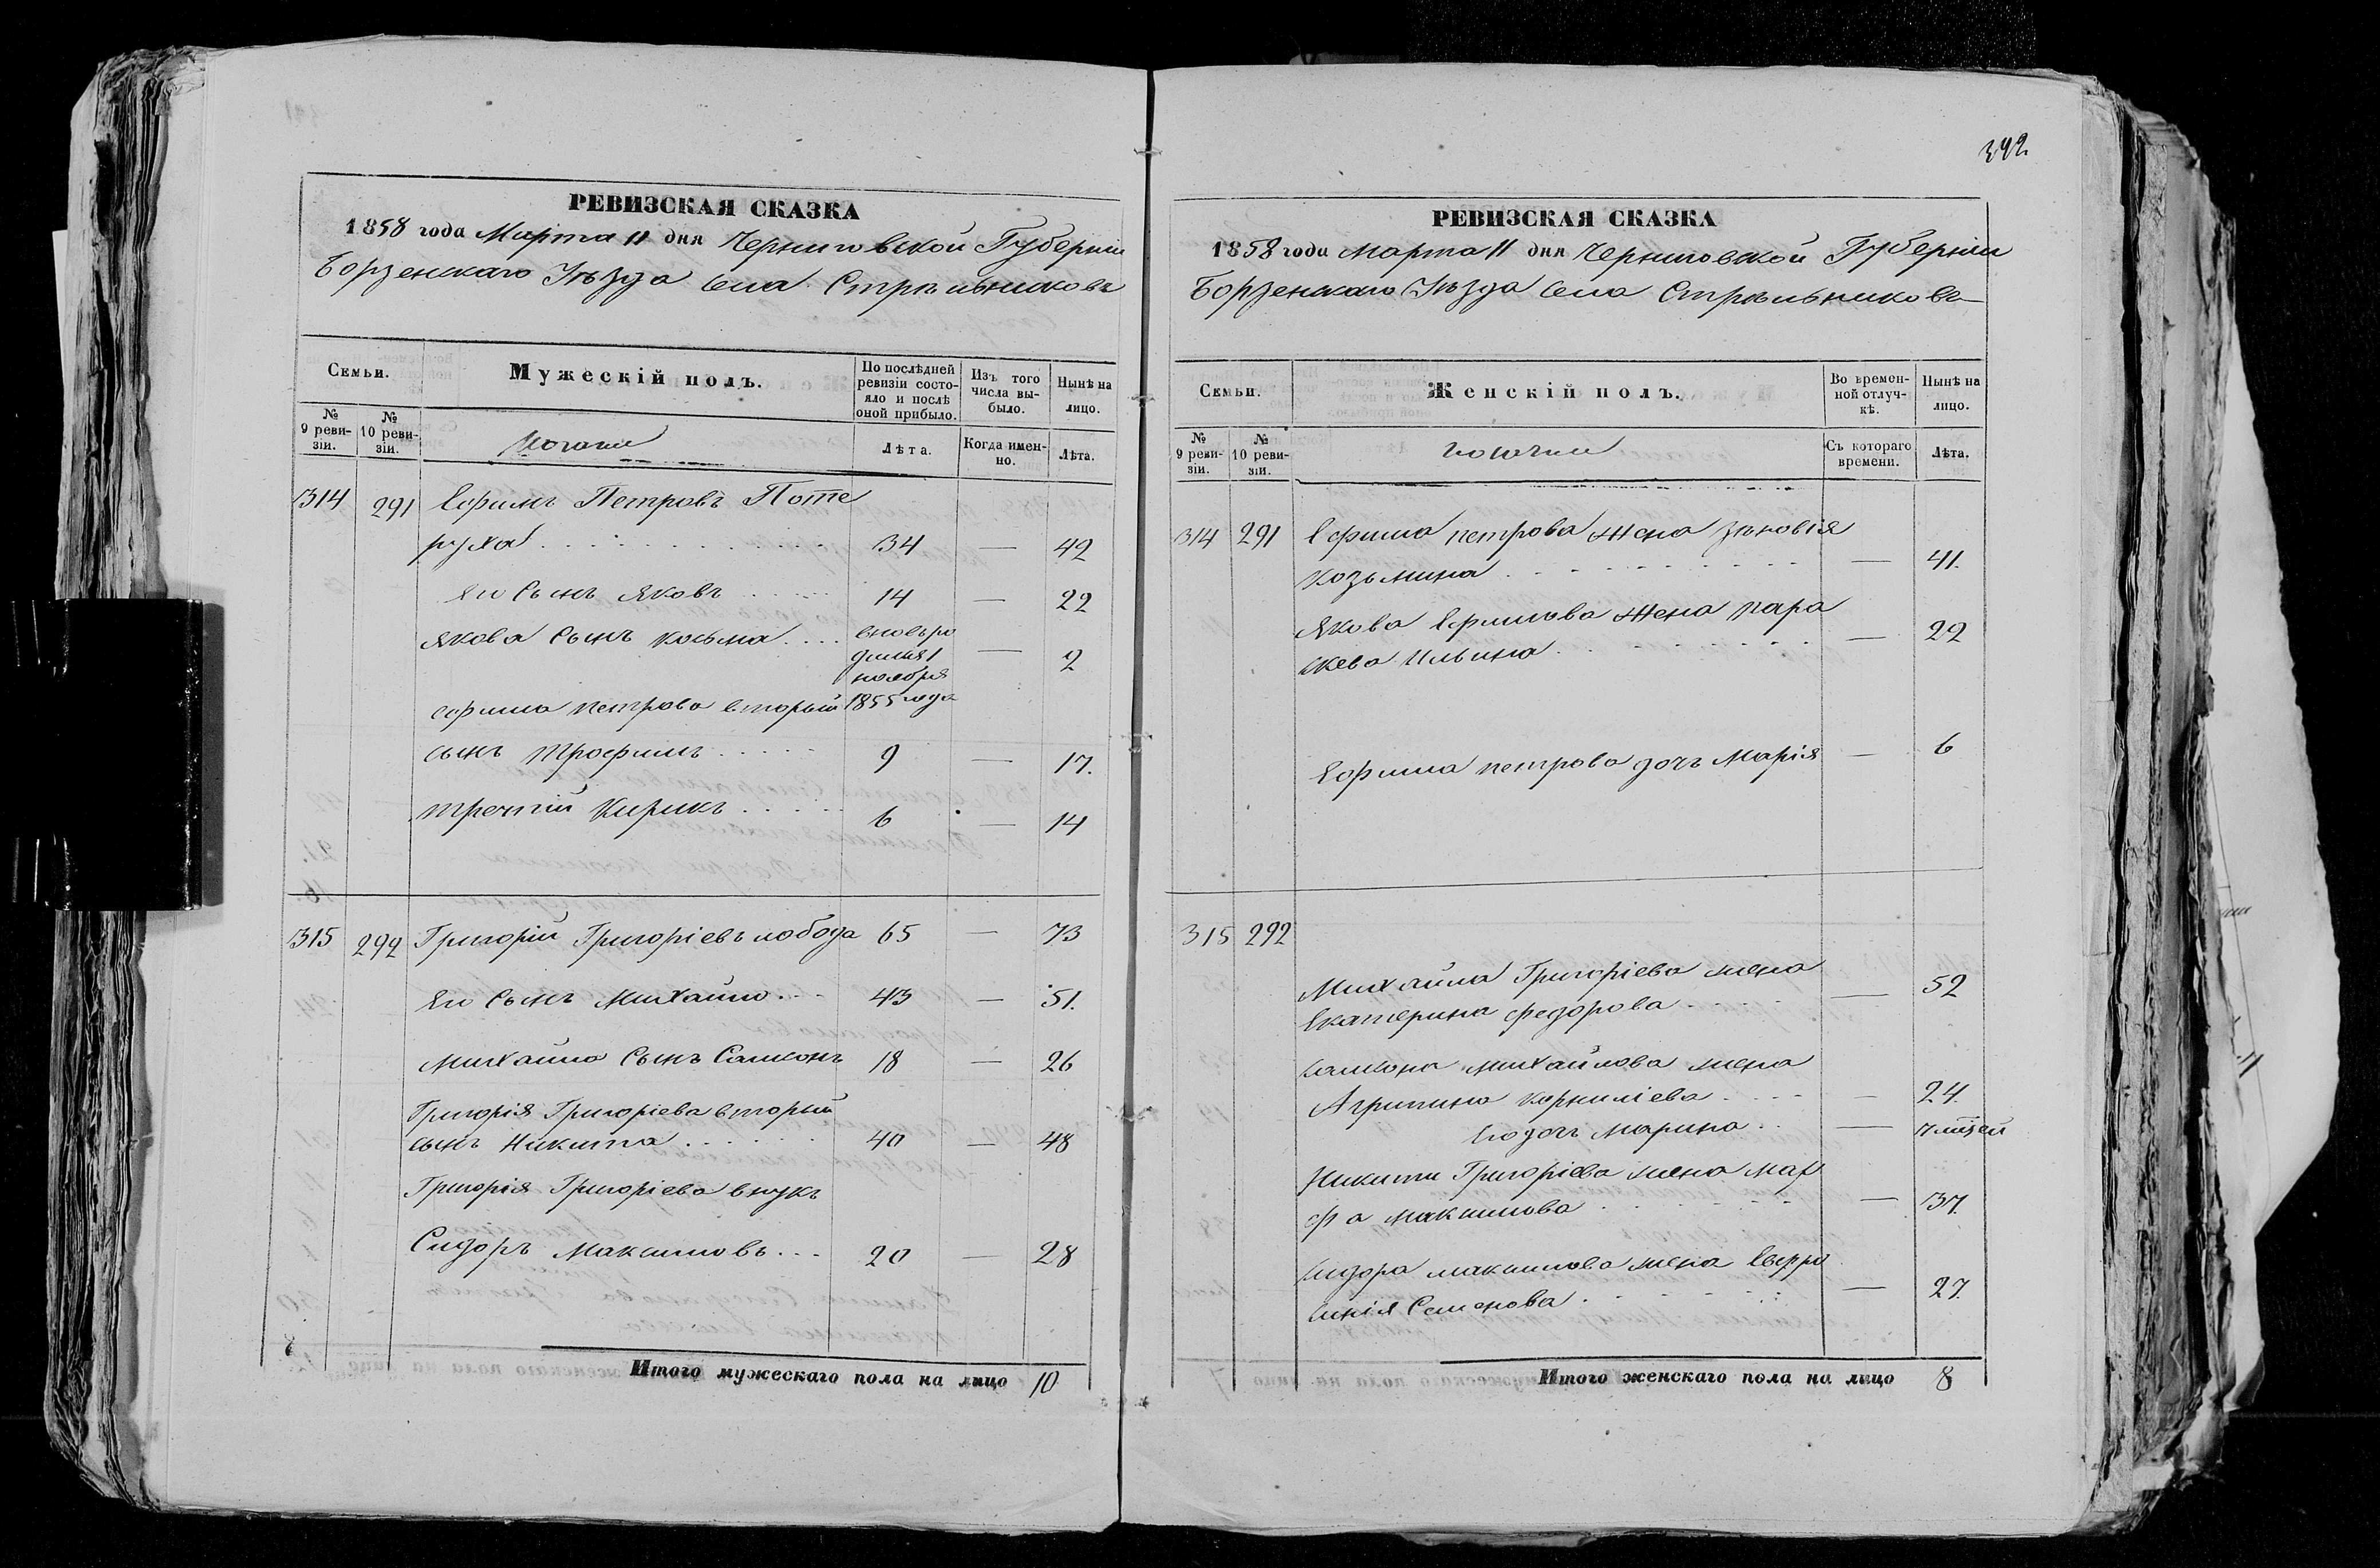 РЕВИЗСКАЯ СКАЗКА
1858 года Марта 11 дня Черниговской Губерніи
Борзенскаго Уѣзда Села Стрѣльниковъ
Семьи.
Мужескій полъ.
По послѣдней ревизіи состояло и послѣ оной прибыло.
Изъ того числа выбыло.
Нынѣ на лицо.
№ 9 ревизіи.
№ 10 ревизіи.
Лѣта.
Когда именно.
Лѣта.
314 291 Ефимъ Петровъ Поте
руха 34 — 42
Его Сынъ Яковъ 14 — 22
Якова Сынъ Косьма вновь ро
дился 1 — 2
ноября
Ефима Петрова вторый 1855 года
сынъ Трофимъ 9 — 17.
третій Кирикъ 6 — 14
315 292 Григорій Григоріевъ лобода 65 — 73
Его Сынъ Михайло 43 — 51.
Михайла Сынъ Самсонъ 18 — 26
Григорія Григоріева вторый
сынъ Никита 40 — 48
Григорія Григоріева внукъ
Сидоръ Максимовъ 20 — 28
Итого мужескаго пола на лицо 10
392
РЕВИЗСКАЯ СКАЗКА
1858 года Марта 11 дня Черниговской Губерніи
Борзенскаго Уѣзда Села Стрѣльниковъ
Семьи.
Женскій полъ.
Во временной отлучкѣ.
Нынѣ на лицо.
№ 9 ревизіи.
№ 10 ревизіи.
Съ котораго времени.
Лѣта.
314 291 Ефима петрова Жена зѣновія
Козьмина — 41.
Якова Ефимова Жена пара
скева Ильина — 22
Ефима петрова дочь Марія — 6
315 292
Михайла Григоріева жена
Екатерина федорова — 52
самсона Михайлова жена
Агрипина корниліева — 24.
Его дочь Марина — 7 мѣсей
Никиты Григоріева жена мар
фа максимова — 37.
сидора максимова жена Евфро
синія Семенова — 27.
Итого женскаго пола на лицо 8